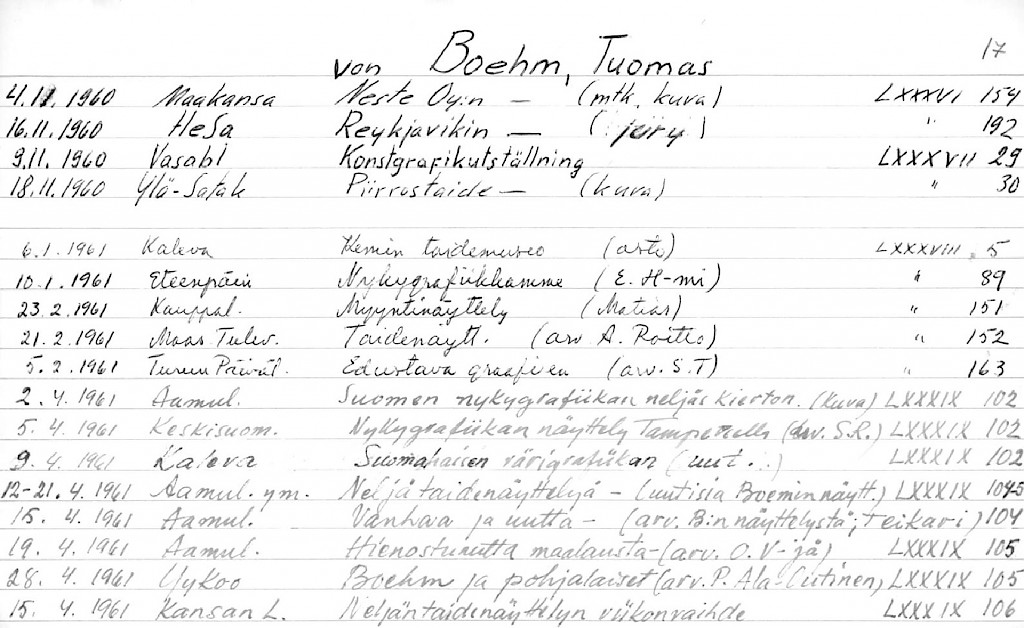 17
von Boehm, Tuomas
4.11.1960 Maakansa Neste Oy:n — (mtk, kuva) LXXXVI 154
16.11.1960 HeSa Reykjavikin — (jury) " 192
9.11.1960 Vasabl Konstgrafikutställning LXXXVII 29
18.11.1960 Ylä-Satak Piirrostaide — (kuva) " 30
6.1.1961 Kaleva Kemin taidemuseo (arto) LXXXVIII 5
10.1.1961 Eteenpäin Nykygrafiikkamme (E. H-mi) " 89
23.2.1961 Kauppal. Myyntinäyttely (Matias) " 151
21.2.1961 Maas.Tulev. Taidenäytt. (arv A. Roitto) " 152
5.2.1961 Turun Päiväl. Edustava graafinen (arv. S.T) " 163
2.4.1961 Aamul. Suomen nykygrafiikan neljäs kierton. (kuva) LXXXIX 102
5.4.1961 Keskisuom. Nykygrafiikan näyttely Tampereella (arv. S.R.) LXXXIX 102
9.4.1961 Kaleva Suomalaisen värigrafiikan (uut..) LXXXIX 102
12-21.4.1961 Aamul. ym. Neljä taidenäyttelyä - (uutisia Boemin näytt.) LXXXIX 104-5
15.4.1961 Aamul. Vanhaa ja uutta - (arv. B:n näyttelystä; Teikari) 104
19.4.1961 Aamul. Hienostunutta maalausta - (arv. O.V-jä) LXXXIX 105
28.4.1961 Uykoo Boehm ja pohjalaiset (arv. P. Ala-Ciutinen) LXXXIX 105
15.4.1961 Kansan L. Neljän taidenäyttelyn viikonvaihde LXXXIX 106